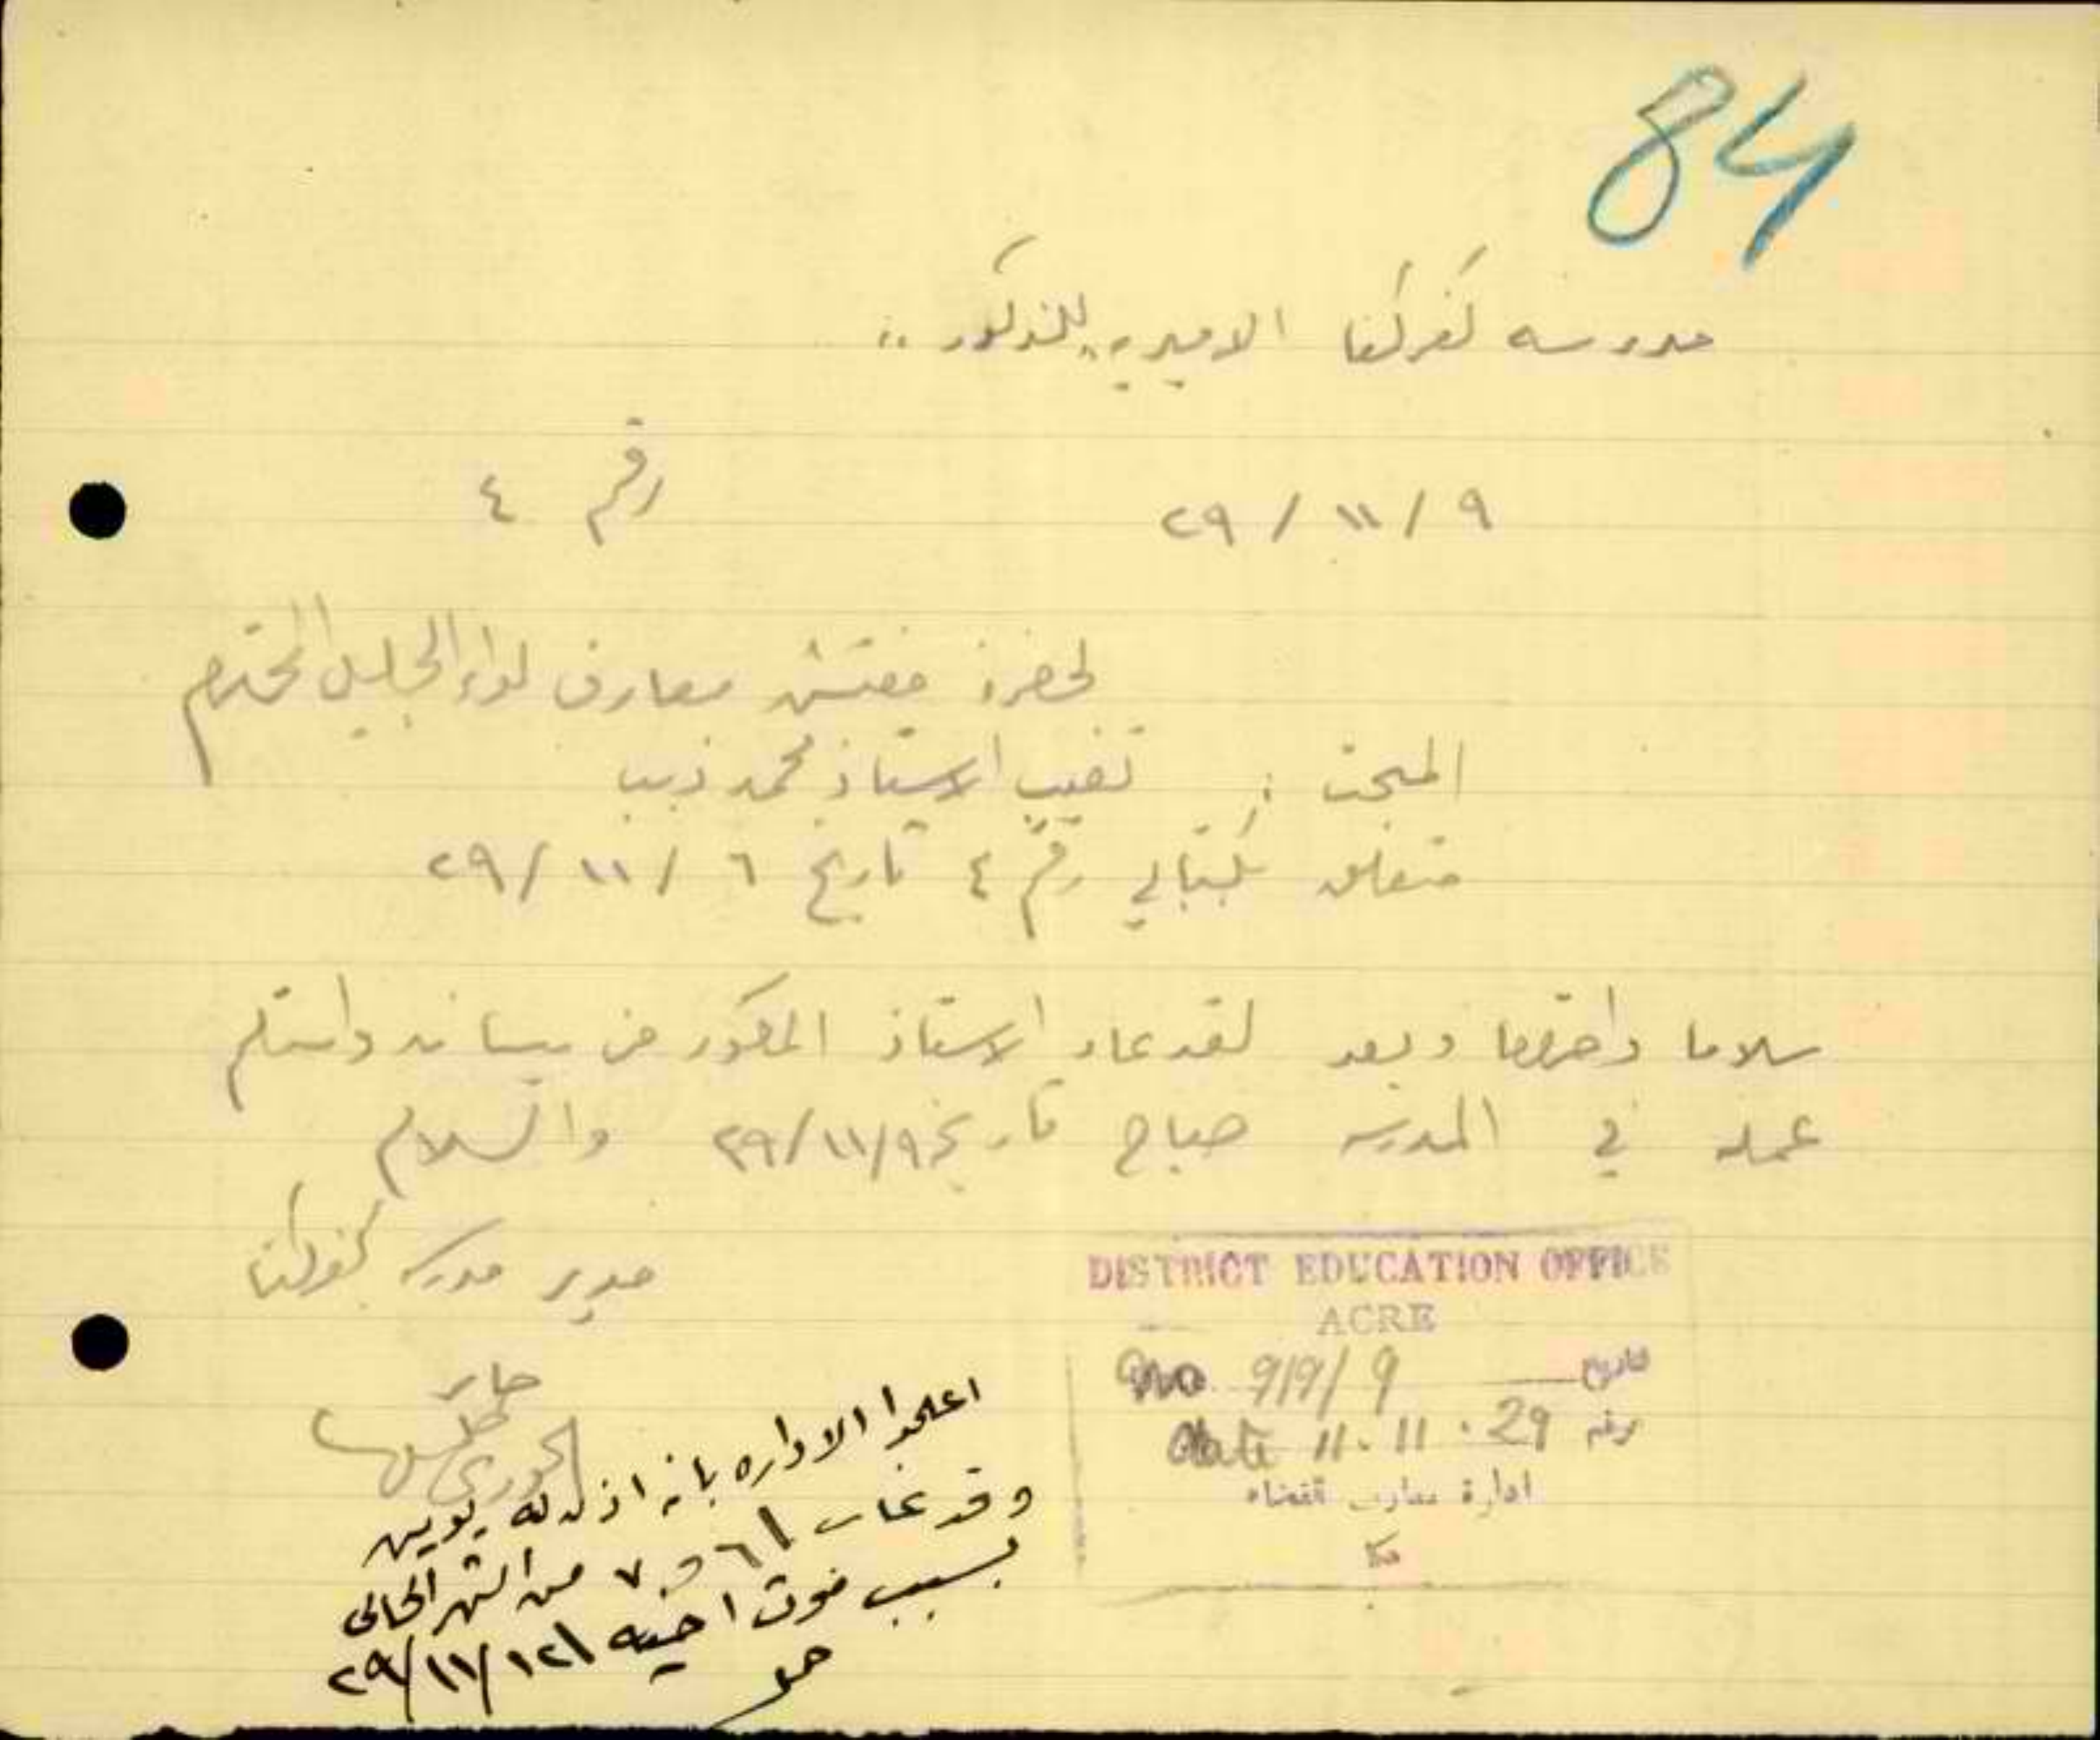 84
مدرسه كفركنا الاميريه للذكور ..
٩ / ١١ / ٢٩ رقم ٤
لحضرة مفتش معارف لواء الجليل المحترم
المبحث : تغيب الاستاذ محمد ذيب
متعلق بكتابي رقم ٤ تاريخ ٦ / ١١ / ٢٩
سلاما واحتراما وبعد لقد عاد الاستاذ المذكور من بيسان واستلم
عمله في المدرسه صباح تاريخ ٩/١١/٢٩ والسلام
مدير مدرسة كفركنا
الخوري
DISTRICT EDUCATION OFFICE
ACRE
No 9/9/9 تاريخ
Date 11.11.29 رقم
ادارة معارف قضاء
عكا
اعلموا الاداره بانه اذن له يومين
وقد غاب ٦ و ٧ من الشهر الحالي
بسبب فوت اخيه ١٢/١١/٢٩